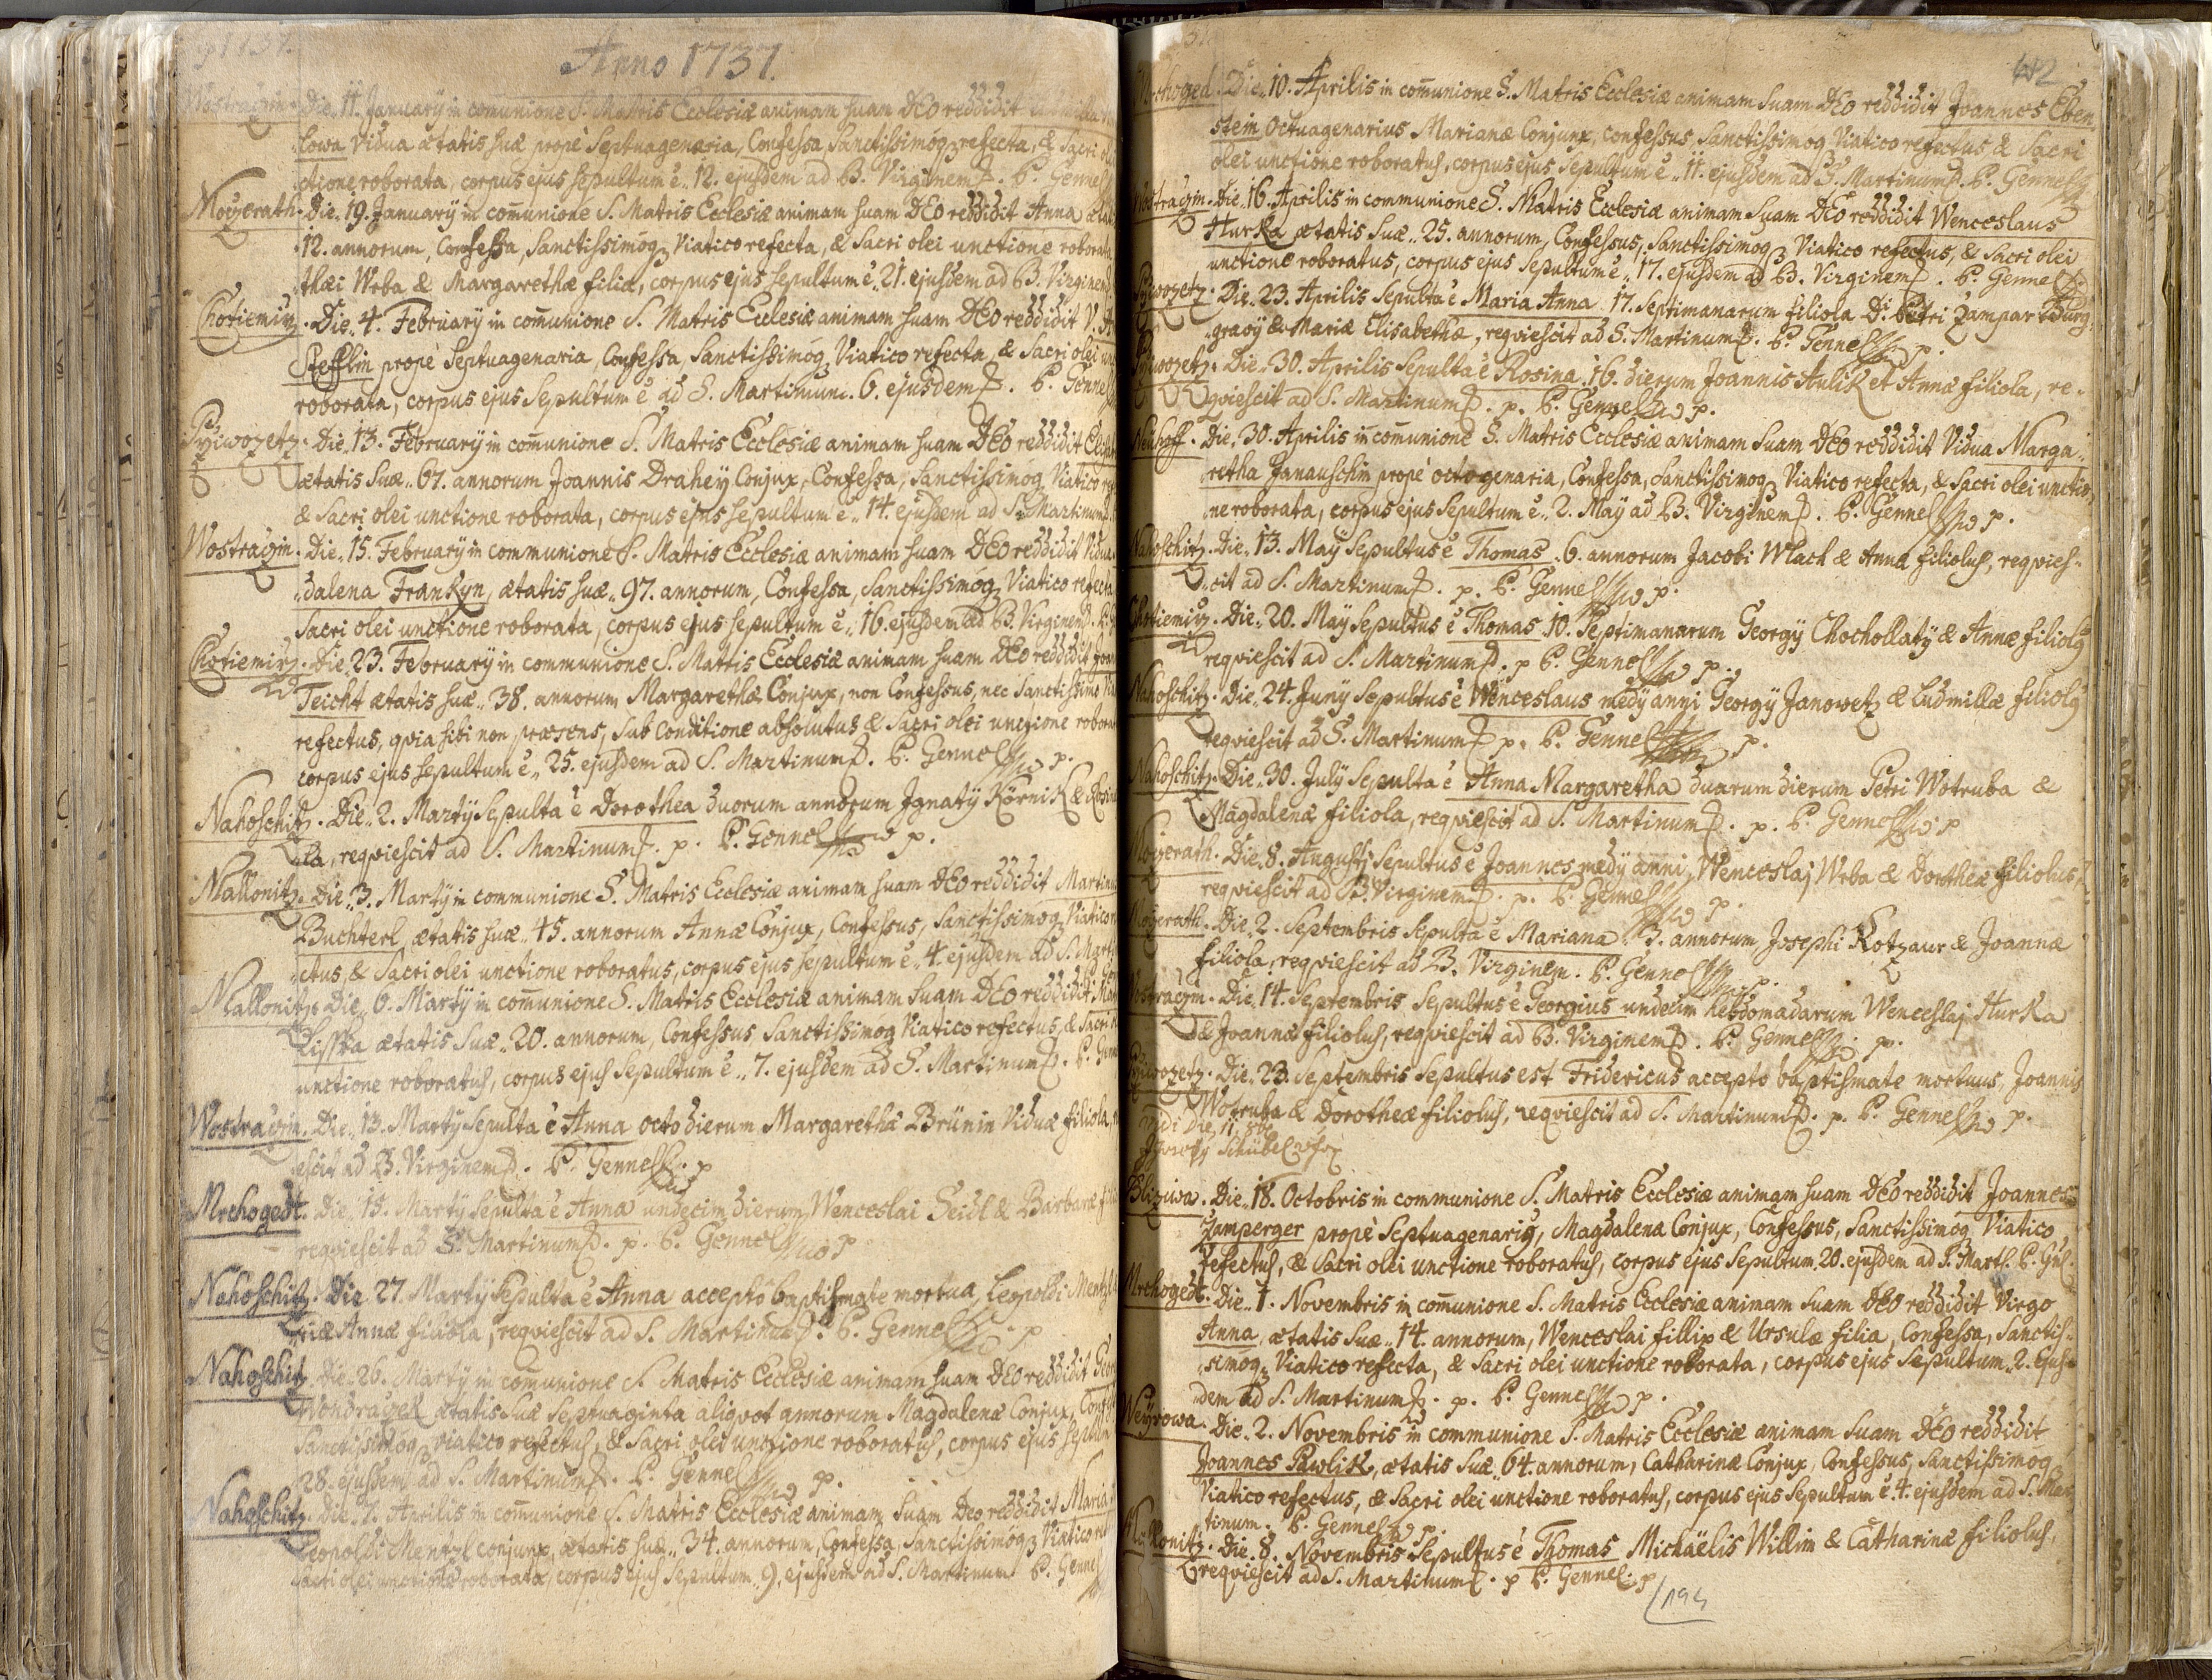 Anno 1737.
Die 11. Januarÿ in comunione S. Matris Ecclesiæ animam suam DEO reddidit
Vidua ætatis suæ propè Septuagenaria, Confessa Sanctissimoq refecta, & Sacri
ctione roborata, corpus ejus sepultum ē 12. ejusdem ad B. Virginem. P. Gennel
Moÿerath. Die 19. Januarÿ in comunione S. Matris Ecclesiæ animam suam DEO reddidit Anna
12. annorum, Confessa, Sanctissimoq Viatico refecta, & Sacri olei unctione roborata
thæi Wrba & Margarethæ filia, corpus ejus sepultum ē 21. ejusdem ad B. Virginem
Chotiemirz. Die 4. Februarÿ in comunione S. Matris Ecclesiæ animam suam DEO reddidit V.
Stefflin propè Septuagenaria, Confessa, Sanctissimoq Viatico refecta, & Sacri olei
roborata, corpus ejus sepultum ē ad S. Martinum 6. ejusdem. P. Gennel
Przivozetz. Die 13. Februarÿ in comunione S. Matris Ecclesiæ animam suam DEO reddidit
ætatis suæ 67. annorum Joannis Draheÿ Conjux, Confessa, Sanctissimoq Viatico
& Sacri olei unctione roborata, corpus ejus sepultum ē 14. ejusdem ad S. Martinum
Wostraczin. Die 15. Februarÿ in communione S. Matris Ecclesiæ animam suam DEO reddidit Vidua
dalena Frankyn, ætatis suæ 97. annorum, Confessa, Sanctissimoq Viatico refecta
Sacri olei unctione roborata, corpus ejus sepultum ē 16. ejusdem ad B. Virginem
Chotiemirz. Die 23. Februarÿ in communione S. Matris Ecclesiæ animam suam DEO reddidit
Teicht ætatis suæ 38. annorum, Margarethæ Conjux, non Confessus, nec Sanctissimo
refectus, qvia sibi non præsens, sub Conditione absolutus & Sacri olei unctione
corpus ejus sepultum ē 25. ejusdem ad S. Martinum. P. Gennel p.
Nahoschitz. Die 2. Martÿ Sepulta ē Dorothea duorum annorum Jgnatÿ Körnik &
la, reqviescit ad S. Martinum. p. P. Gennel p.
Mallonitz. Die 3. Martÿ in communione S. Matris Ecclesiæ animam suam DEO reddidit
Buchterl, ætatis suæ 45. annorum Annæ Conjux, Confessus, Sanctissimoq Viatico
ctus, & Sacri olei unctione roboratus, corpus ejus sepultum ē 4. ejusdem ad S.
Mallonitz. Die 6. Martÿ in comunione S. Matris Ecclesiæ animam suam DEO reddidit
Lisska ætatis suæ 20. annorum, Confessus Sanctissimoq Viatico refectus, & Sacri
unctione roboratus, corpus ejus sepultum ē 7. ejusdem ad S. Martinum.
Wostraczin. Die 13. Martÿ Sepulta ē Anna octo dierum Margarethæ Brünin Viduæ filiola,
escit ad B. Virginem. P. Gennel p
Mrchogedt. Die 15. Martÿ Sepulta ē Anna undecim dierum Wenceslai Seidl & Barbaræ
reqviescit ad S. Martinum. p. P. Gennel p
Nahoschitz. Die 27. Martÿ Sepulta ē Anna acceptô baptismate mortua, Leopoldi Mentzl
riæ Annæ filiola, reqviescit ad S. Martinum. P. Gennel p
Nahoschitz. Die 26. Martÿ in comunione S. Matris Ecclesiæ animam suam DEO reddidit
Wondraczek ætatis suæ Septuaginta aliqvot annorum Magdalenæ Conjux,
Sanctissimoq viatico refectus, & Sacri olei unctione roboratus, corpus ejus
28. ejusdem ad S. Martinum. P. Gennel p.
Nahoschitz. Die 7. Aprilis in comunione S. Matris Ecclesiæ animam suam Deo reddidit Maria
Leopoldi Mentzl conjunx, ætatis suæ 34. annorum, Confessa, Sanctissimoq Viatico
sacri olei unctione roborata, corpus ejus Sepultum 9. ejusdem ad S. Martinum P. Gennel
Die 10. Aprilis in comunione S. Matris Ecclesiæ animam suam DEO reddidit Joannes Eben
stein Octuagenarius Marianæ Conjunx, confessus, Sanctissimoq Viatico refectus & Sacri
olei unctione roboratus, corpus ejus Sepultum ē 11. ejusdem ad S. Martinum. P. Gennel
Die 16. Aprilis in communione S. Matris Ecclesiæ animam suam DEO reddidit Wenceslaus
Hurka ætatis suæ 25. annorum, Confessus, Sanctissimoq Viatico refectus, & Sacri olei
unctione roboratus, corpus ejus Sepultum ē 17. ejusdem ad B. Virginem. P. Gennel
Die 23. Aprilis Sepulta ē Maria Anna 17. Septimanarum filiola D. Petri Zampar Burg
gravÿ & Mariæ Elisabethæ, reqviescit ad S. Martinum. P. Gennel p.
Die 30. Aprilis Sepulta ē Rosina 16. dierum Joannis Aulik et Annæ filiola, re-
qviescit ad S. Martinum. p. P. Gennel p.
Neuhoff. Die 30. Aprilis in comunione S. Matris Ecclesiæ animam suam DEO reddidit Vidua Marga
retha Janauschin propè octogenaria, Confessa, Sanctissimoq Viatico refecta, & Sacri olei unctio
ne roborata, corpus ejus Sepultum ē 2. Maÿ ad B. Virginem. P. Gennel p.
Nahoschitz. Die 13. Maÿ Sepultus ē Thomas 6. annorum Jacobi Wlach & Annæ filiolus, reqvies-
cit ad S. Martinum. p. P. Gennel p.
Chotiemirz. Die 20. Maÿ Sepultus ē Thomas 10. Septimanarum Georgÿ Chochollatÿ & Annæ filiolq
reqviescit ad S. Martinum. p P. Gennel p.
Nahoschitz. Die 24. Junÿ Sepultus ē Wenceslaus medÿ anni Georgÿ Janowetz & Ludmillæ filiolq
reqviescit ad S. Martinum p. P. Gennel p.
Nahoschitz. Die 30. Julÿ Sepulta ē Anna Margaretha duarum dierum Petri Wotruba &
Magdalenæ filiola, reqviescit ad S. Martinum. p. P. Gennel p
Moÿerath. Die 8. Augusti Sepultus ē Joannes medÿ anni, Wenceslaj Wrba & Dorotheæ filiolus,
reqviescit ad B. Virginem. p. P. Gennel p.
Moÿerath. Die 2. Septembris Sepulta ē Mariana 3. annorum, Josephi Kotzaur & Joannæ
filiola, reqviescit ad B. Virginem. P. Gennel p.
Die 14. Septembris Sepultus ē Georgius undecim hebdomadarum Wenceslaj Hurka
& Joannæ filiolus, reqviescit ad B. Virginem. P. Gennel p.
Die 23. Septembris Sepultus est Fridericus acceptô baptismate mortuus, Joannis
Wotruba & Dorotheæ filiolus, reqviescit ad S. Martinum. p. P. Gennel p.
Vidi Die 11. 8bris
Schübel
Blizziwa. Die 18. Octobris in communione S. Matris Ecclesiæ animam suam DEO reddidit Joannes
Zamperger propè Septuagenariq, Magdalena Conjux, Confessus, Sanctissimoq Viatico
refectus, & Sacri olei unctione roboratus, corpus ejus Sepultum 20. ejusdem ad S. Marth.
Mrchogedt. Die 1. Novembris in comunione S. Matris Ecclesiæ animam suam DEO reddidit Virgo
Anna, ætatis suæ 14. annorum, Wenceslai Fillip & Ursulæ filia, Confessa, Sanctis-
simoq Viatico refecta, & Sacri olei unctione roborata, corpus ejus Sepultum 2. Ejus
dem ad S. Martinum. p. P. Gennel p.
Weÿrowa. Die 2. Novembris in communione S. Matris Ecclesiæ animam suam DEO reddidit
Joannes Pawlik, ætatis suæ 64. annorum, Catharinæ Conjux, Confessus, Sanctissimoq
Viatico refectus, & Sacri olei unctione roboratus, corpus ejus Sepultum ē 4. ejusdem ad S. Mar
tinum. P. Gennel p.
Die 8. Novembris Sepultus ē Thomas Michaëlis Willim & Catharinæ filiolus,
reqviescit ad S. Martinum. p P. Gennel. p